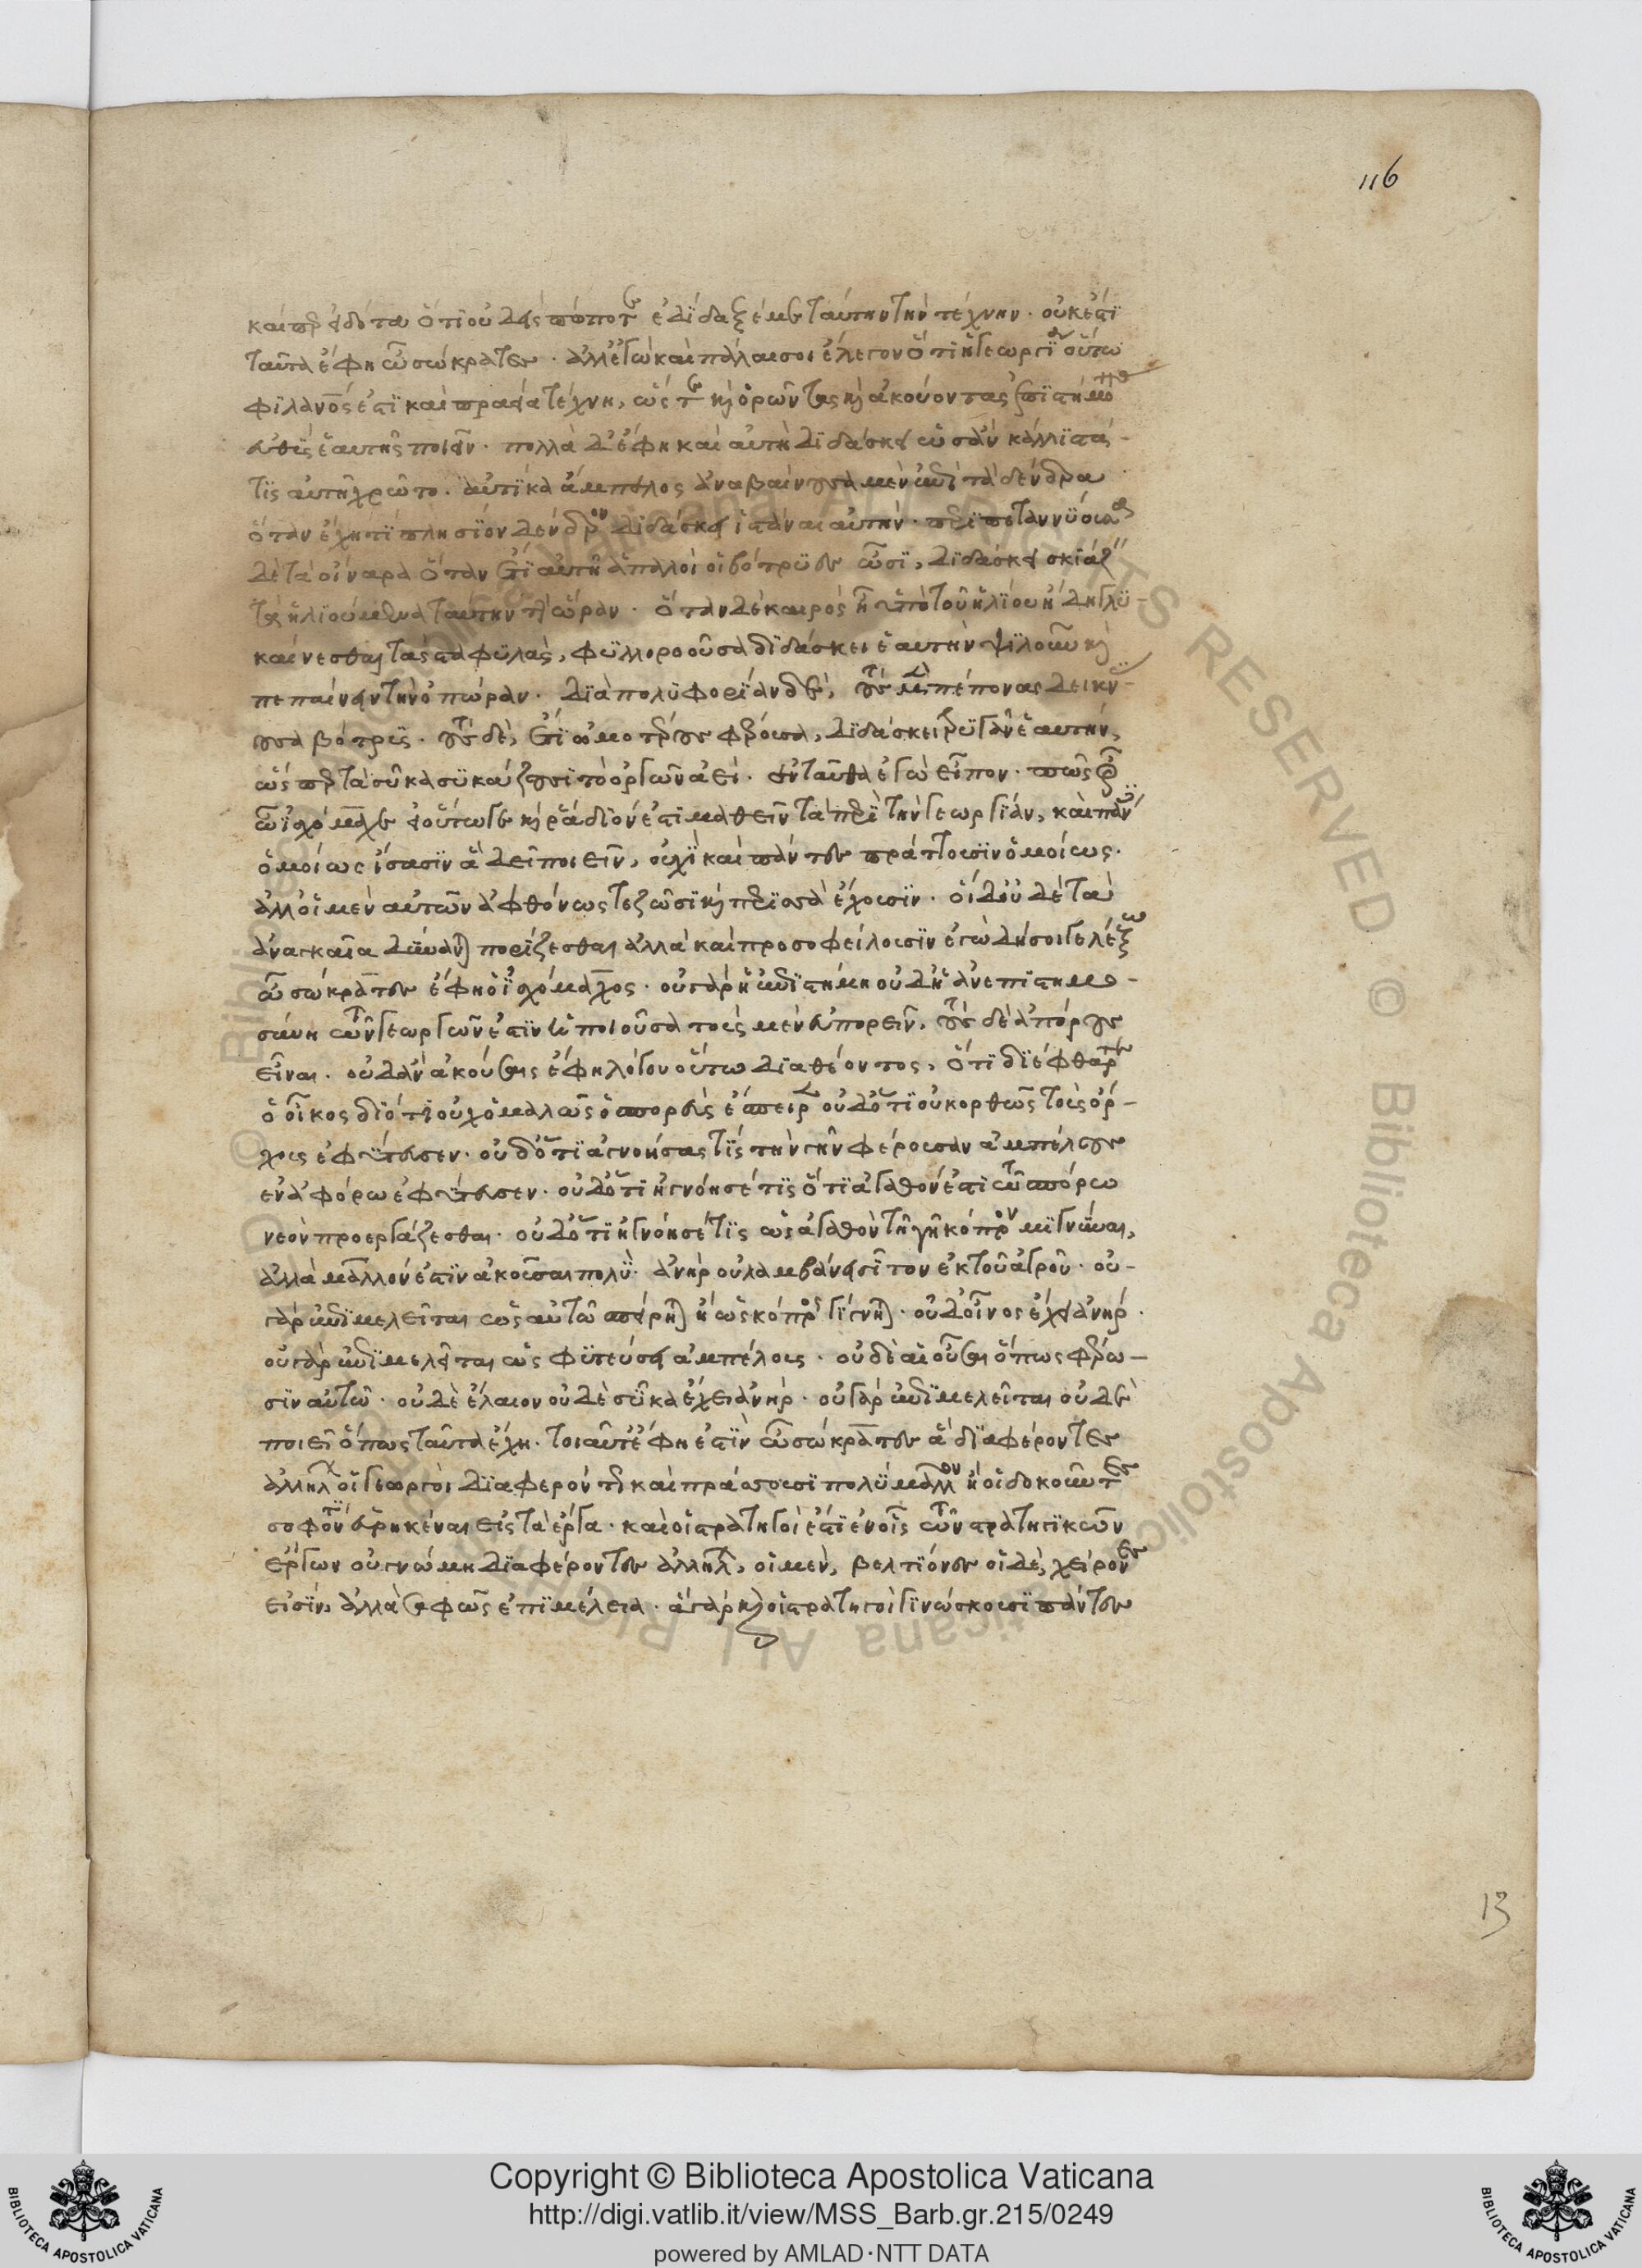 116
καίπερ εἰδότα ὅτι οὐδεὶς πώποτε ἐδίδαξέ με ταύτην τὴν τέχνην· οὐκ ἔστι
ταῦτα ἔφη ὦ σώκρατες· ἀλλ' ἐγὼ καὶ πάλαι σοι ἔλεγον ὅτι ἡ γεωργία οὕτω
φιλάνθρωπός ἐστι καὶ πραεῖα τέχνη, ὥστε καὶ ὁρῶντας καὶ ἀκούοντας ἐπιστήμο
εὐθὺς ἑαυτῆς ποιεῖν· πολλὰ δ' ἔφη καὶ αὐτὴ διδάσκει ὡς ἂν κάλλιστά
τις αὐτῇ χρῶτο· αὐτίκα ἄμπελος ἀναβαίνουσα μὲν ἐπὶ τὰ δένδρα
ὅταν ἔχῃ τι πλησίον δένδρον διδάσκει ἱστάναι αὐτήν· περιπεταννύουσα
δὲ τὰ οἴναρα ὅταν ἔτι αὐτῇ ἁπαλοὶ οἱ βότρυες ὦσι, διδάσκει σκιάζειν
τὰ ἡλιούμενα ταύτην τὴν ὥραν· ὅταν δὲ καιρὸς ᾖ ὑπὸ τοῦ ἡλίου ἤδη γλυ-
καίνεσθαι τὰς σταφυλάς, φυλλοροοῦσα διδάσκει ἑαυτὴν ψιλοῦν καὶ
πεπαίνειν τὴν ὀπώραν· διὰ πολυφορίαν δὲ, τοὺς μὲν πέπονας δεικνύ-
ουσα βότρυς· τοὺς δὲ, ἔτι ὠμοτέρους φέρουσα, διδάσκει τρυγᾶν ἑαυτήν,
ὥσπερ τὰ σῦκα συκάζουσι τὸ ὀργῶν ἀεί· ἐνταῦθα ἐγὼ εἶπον· πῶς οὖν
ὦ ἰσχόμαχε εἰ οὕτω γε καὶ ῥᾴδιόν ἐστι μαθεῖν τὰ περὶ τὴν γεωργίαν, καὶ πάντες
ὁμοίως ἴσασιν ἃ δεῖ ποιεῖν, οὐχὶ καὶ πάντες πράττουσιν ὁμοίως·
ἀλλ' οἱ μὲν αὐτῶν ἀφθόνως τε ζῶσι καὶ περισσὰ ἔχουσιν· οἱ δ' οὐδὲ τὰ
ἀναγκαῖα δύνανται πορίζεσθαι ἀλλὰ καὶ προσοφείλουσιν ἐγὼ δή σοι λέξω
ὦ σώκρατες ἔφη ὁ ἰσχόμαχος· οὐ γὰρ ἡ ἐπιστήμη οὐδ' ἡ ἀνεπιστημο-
σύνη τῶν γεωργῶν ἐστιν ἡ ποιοῦσα τοὺς μὲν εὐπορεῖν, τοὺς δὲ ἀπόρους
εἶναι· οὐδ' ἂν ἀκούσαις ἔφη λόγου οὕτω διαθέοντος, ὅτι διέφθαρται
ὁ οἶκος διότι οὐχ ὁμαλῶς ὁ σπορεὺς ἔσπειρεν οὐδ' ὅτι οὐκ ὀρθῶς τοὺς ὄρ-
χους ἐφύτευσεν· οὐδ' ὅτι ἀγνοήσας τις τὴν γῆν φέρουσαν ἀμπέλους
ἐν ἀφόρῳ ἐφύτευσεν· οὐδ' ὅτι ἠγνόησέ τις ὅτι ἀγαθόν ἐστι τῷ σπόρῳ
νεὸν προεργάζεσθαι· οὐδ' ὅτι ἠγνόησέ τις ὡς ἀγαθὸν τῇ γῇ κόπρον μιγνύναι,
ἀλλὰ μᾶλλον ἔστιν ἀκοῦσαι πολύ· ἀνὴρ οὐ λαμβάνει σῖτον ἐκ τοῦ ἀγροῦ· οὐ-
γὰρ ἐπιμελεῖται ὡς αὐτῷ σπείρηται ἢ ὡς κόπρος γίγνηται· οὐδ' οἶνος ἔχει ἀνήρ·
οὐ γὰρ ἐπιμελεῖται ὡς φυτεύσῃ ἀμπέλους· οὐδὲ αἱ οὖσαι ὅπως φέρω-
σιν αὐτῷ· οὐδὲ ἔλαιον οὐδὲ σῦκα ἔχει ἀνήρ· οὐ γὰρ ἐπιμελεῖται οὐδὲ
ποιεῖ ὅπως ταῦτα ἔχῃ· τοιαῦτ' ἔφη ἐστὶν ὦ σώκρατες ἃ διαφέροντες
ἀλλήλων οἱ γεωργοὶ διαφερόντως καὶ πράσσουσι πολὺ μᾶλλον ἢ οἱ δοκοῦντες
σοφόν τι εὑρηκέναι εἰς τὰ ἔργα· καὶ οἱ στρατηγοὶ ἔστι ἐν οἷς τῶν στρατηγικῶν
ἔργων οὐ γνώμῃ διαφέροντες ἀλλήλων, οἱ μὲν, βελτίονες οἱ δὲ, χείρονες
εἰσίν, ἀλλὰ σαφῶς ἐπιμέλεια· ἃ γὰρ καὶ οἱ στρατηγοὶ γινώσκουσι πάντες
13
Copyright © Biblioteca Apostolica Vaticana
http://digi.vatlib.it/view/MSS_Barb.gr.215/0249
powered by AMLAD·NTT DATA